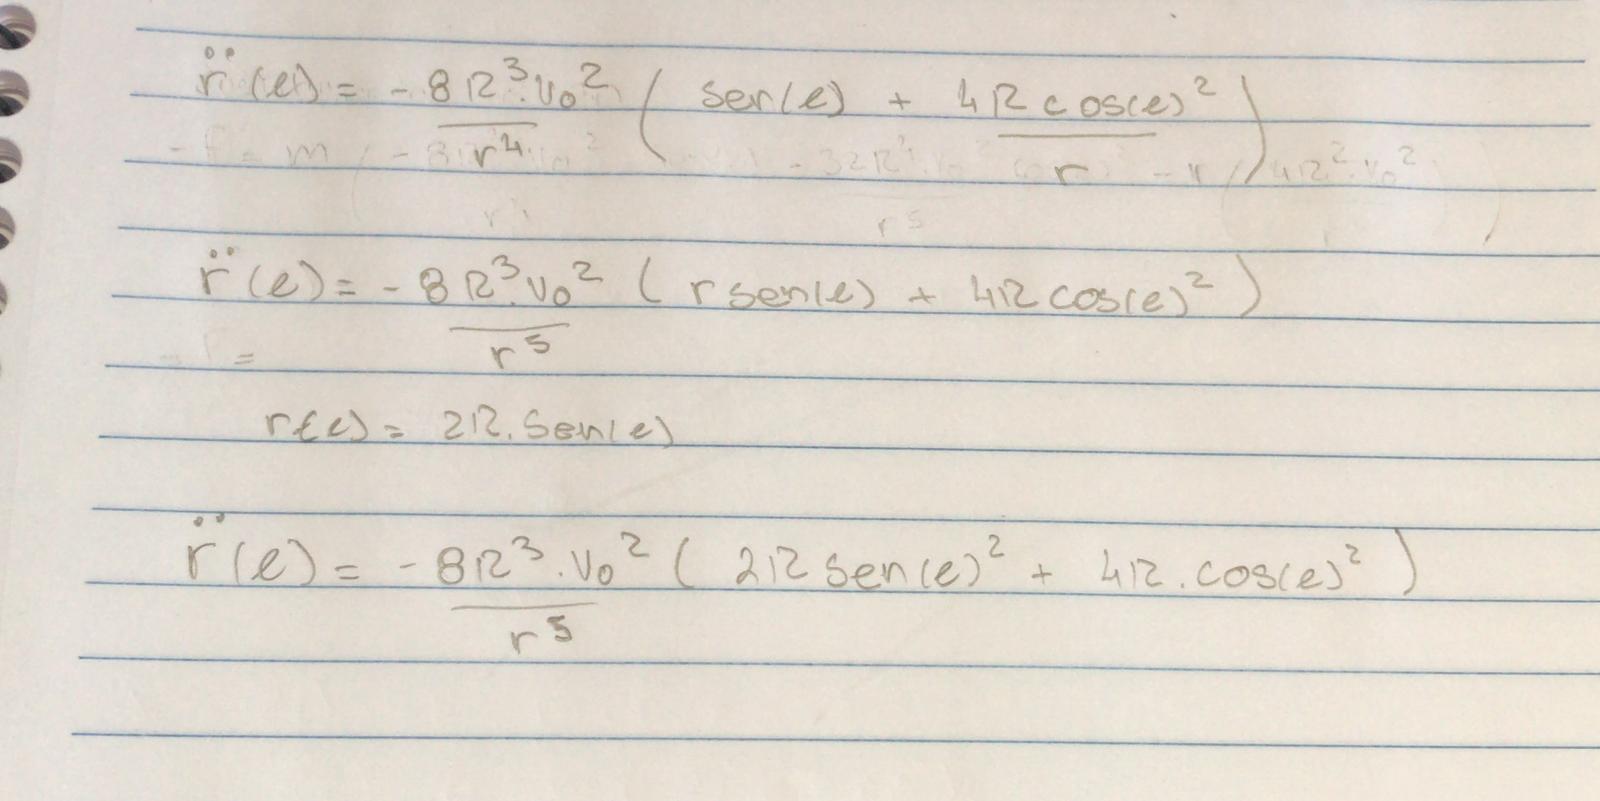 r̈(e) = - 8R³.v₀² / r⁴ ( sen(e) + 4R cos(e)² / r )
r̈(e) = - 8R³.v₀² / r⁵ ( r sen(e) + 4R cos(e)² )
r(e) = 2R.sen(e)
r̈(e) = - 8R³.v₀² / r⁵ ( 2R sen(e)² + 4R.cos(e)² )